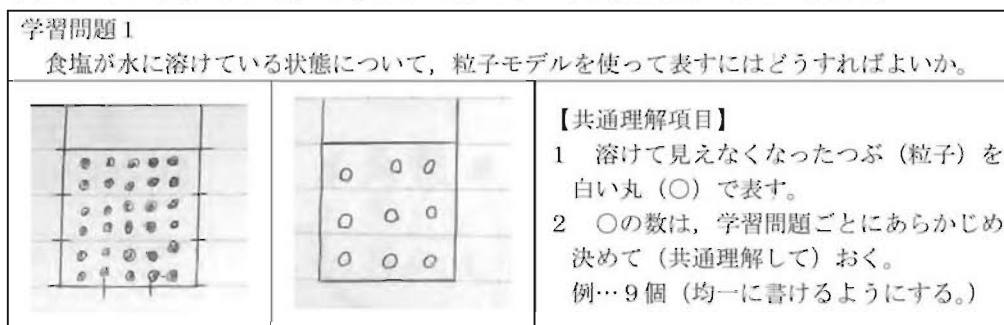 学習問題1
食塩が水に溶けている状態について，粒子モデルを使って表すにはどうすればよいか。
【共通理解項目】
1　溶けて見えなくなったつぶ（粒子）を
白い丸（○）で表す。
2　○の数は，学習問題ごとにあらかじめ
決めて（共通理解して）おく。
例…9個（均一に書けるようにする。）